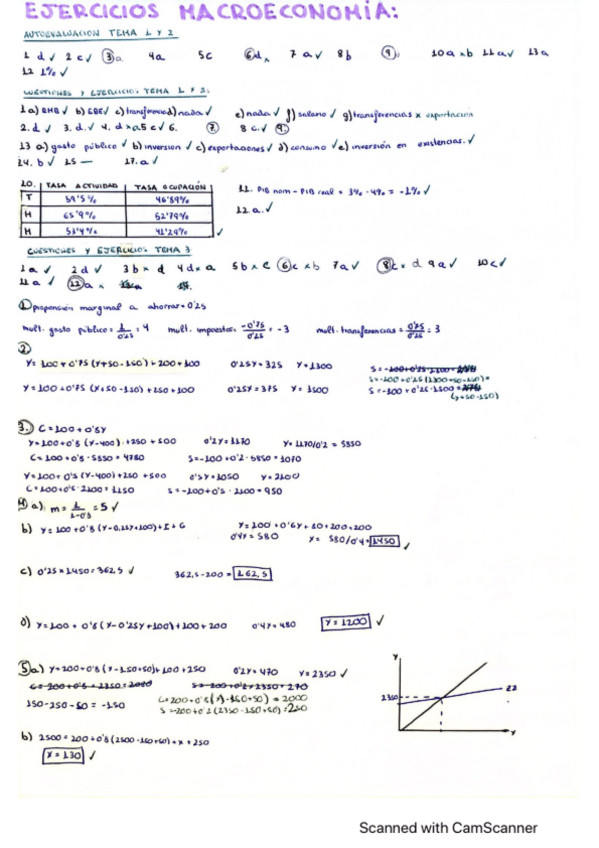 EJERCICIOS MACROECONOMÍA:
AUTOEVALUACION TEMA 1 Y 2
1 d ✓ 2 c ✓ ③a 4a 5c ⑥d x 7 a ✓ 8b ⑨. 10 a x b 11 a ✓ 13 a
12 1% ✓
CUESTIONES Y EJERCICIOS TEMA 1 Y 2:
1 a) ✓ b) EBE ✓ c) transferencia d) nada ✓ e) nada ✓ f) salario ✓ g) transferencias x exportación
2. d ✓ 3. d. ✓ 4. d x a 5 c ✓ 6. ⑦. 8 c. ✓ ⑨.
13 a) gasto público ✓ b) inversion ✓ c) exportaciones ✓ d) consumo ✓ e) inversión en existencias. ✓
14. b ✓ 15 — 17. a ✓
10. TASA ACTIVIDAD TASA OCUPACIÓN
T 59'5% 46'89%
H 65'9% 52'79%
H 53'4% 41'29% ✓
11. PIB nom - PIB real = 3% - 4% = -1% ✓
12. a. ✓
CUESTIONES Y EJERCICIOS TEMA 3
1 a ✓ 2 d ✓ 3 b x d 4 d x a 5 b x c ⑥c x b 7 a ✓ ⑧c x d 9 a ✓ 10 c ✓
11 a ✓ ⑫a x
① propensión marginal a ahorrar = 0'25
mult. gasto público = 1/0'25 = 4 mult. impuestos = -0'75/0'25 = -3 mult. transferencias = 0'75/0'25 = 3
②
Y = 100 + 0'75 (Y+50-150) + 200 + 100 0'25Y = 325 Y = 1300
S = -100 + 0'25 (1300+50-150) =
Y = 100 + 0'75 (Y+50-150) + 250 + 100 0'25Y = 375 Y = 1500
(Y+50-150)
③. C = 100 + 0'8Y
Y = 100 + 0'8 (Y-400) + 250 + 500 0'2Y = 1170 Y = 1170/0'2 = 5850
C = 100 + 0'8 · 5850 = 4780 S = -100 + 0'2 · 5850 = 1070
Y = 100 + 0'5 (Y-400) + 250 + 500 0'5Y = 1050 Y = 2100
C = 100 + 0'5 · 2100 = 1150 S = -100 + 0'5 · 2100 = 950
④ a). m = 1/1-0'8 = 5 ✓
b) Y = 100 + 0'8 (Y-0,25Y+100) + I + G Y = 100 + 0'6Y + 80 + 200 + 200
0'4Y = 580 Y = 580/0'4 = 1450 ✓
c) 0'25 x 1450 = 362,5 ✓ 362,5 - 200 = 162,5
d) Y = 100 + 0'8 (Y-0'25Y+100) + 100 + 200 0'4Y = 480 Y = 1200 ✓
⑤ a) Y = 200 + 0'8 (Y-150+50) + 100 + 250 0'2Y = 470 Y = 2350 ✓
C = 200 + 0'8 (Y-150+50) = 2000
150 - 250 - 50 = -150 S = -200 + 0'2 (2350-150+50) = 250
b) 2500 = 200 + 0'8 (2500-150+50) + x + 250
x = 130 ✓
Y
2350
Y
Scanned with CamScanner